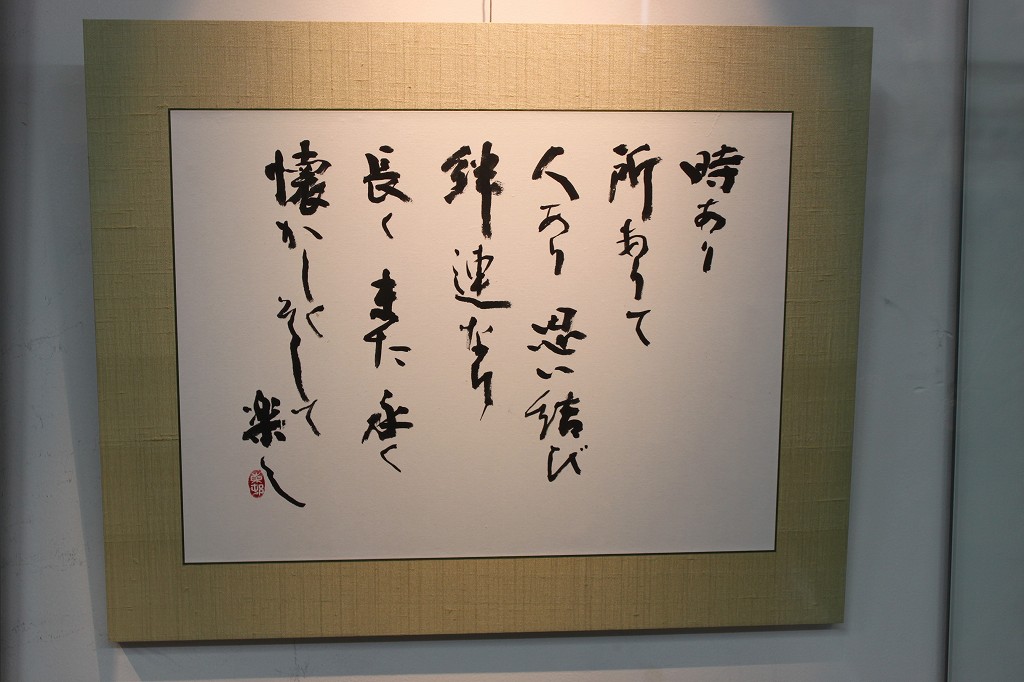 時あり
所ありて
人あり 思い結び
絆連なり
長く また 永く
懐かしくそして 楽し